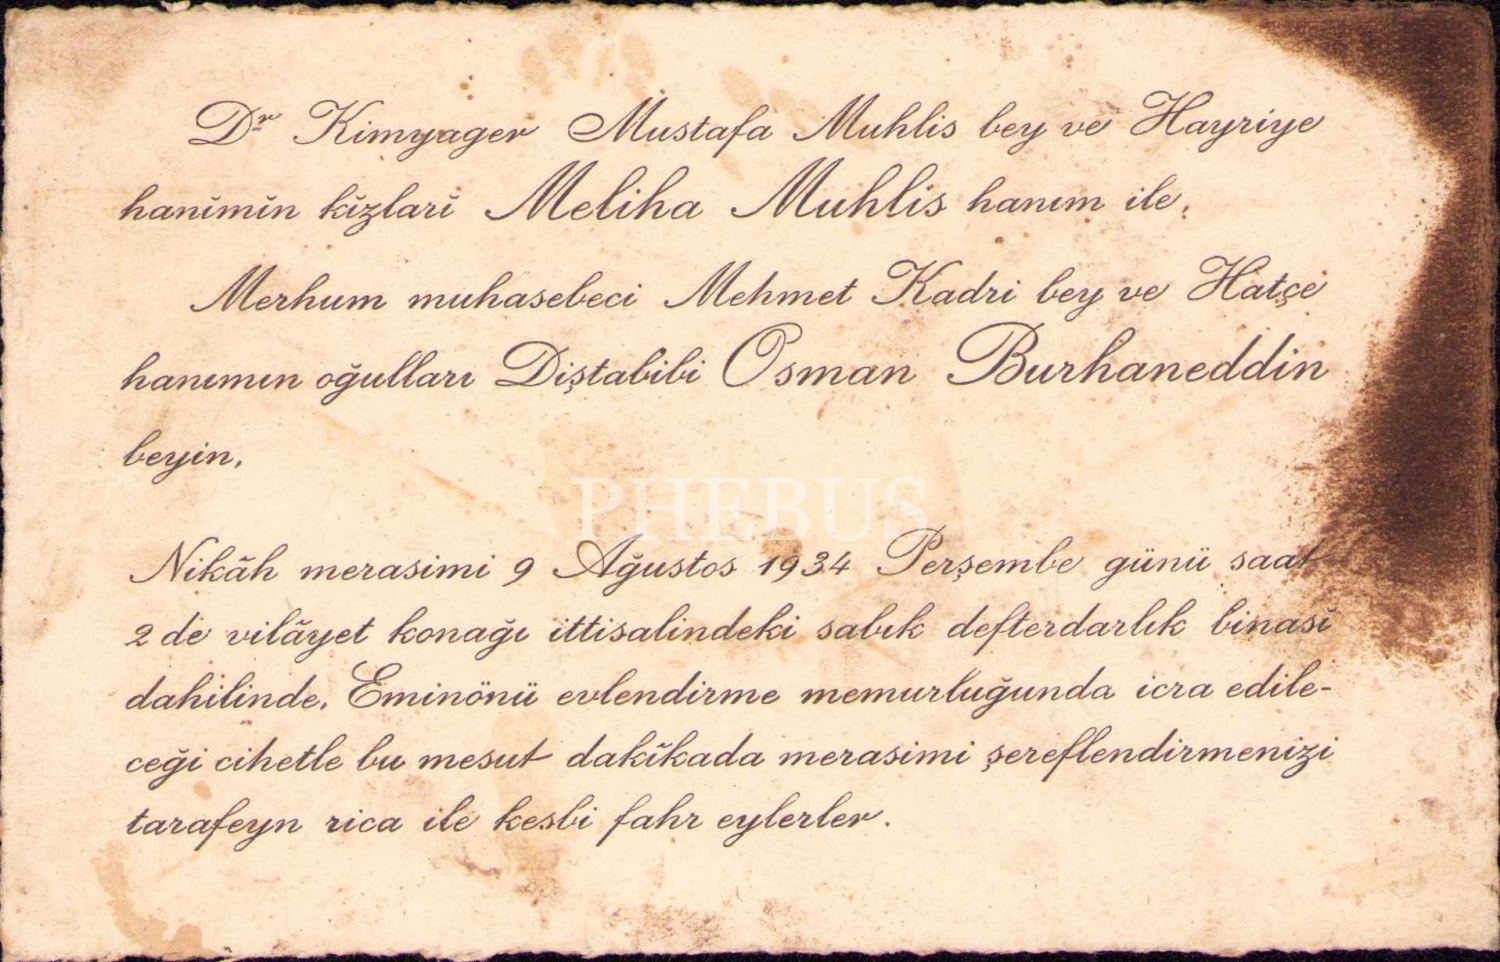 Dr Kimyager Mustafa Muhlis bey ve Hayriye
hanĭmĭn kĭzlarĭ Meliha Muhlis hanım ile,
Merhum muhasebeci Mehmet Kadri bey ve Hatçe
hanımın oğulları Diştabibi Osman Burhaneddin
beyin,
PHEBUS
Nikâh merasimi 9 Ağustos 1934 Perşembe günü saat
2 de vilâyet konağı ittisalindeki sabık defterdarlık binasĭ
dahilinde, Eminönü evlendirme memurluğunda icra edile-
ceği cihetle bu mesut dakĭkada merasimi şereflendirmenizi
tarafeyn rica ile kesbi fahr eylerler.